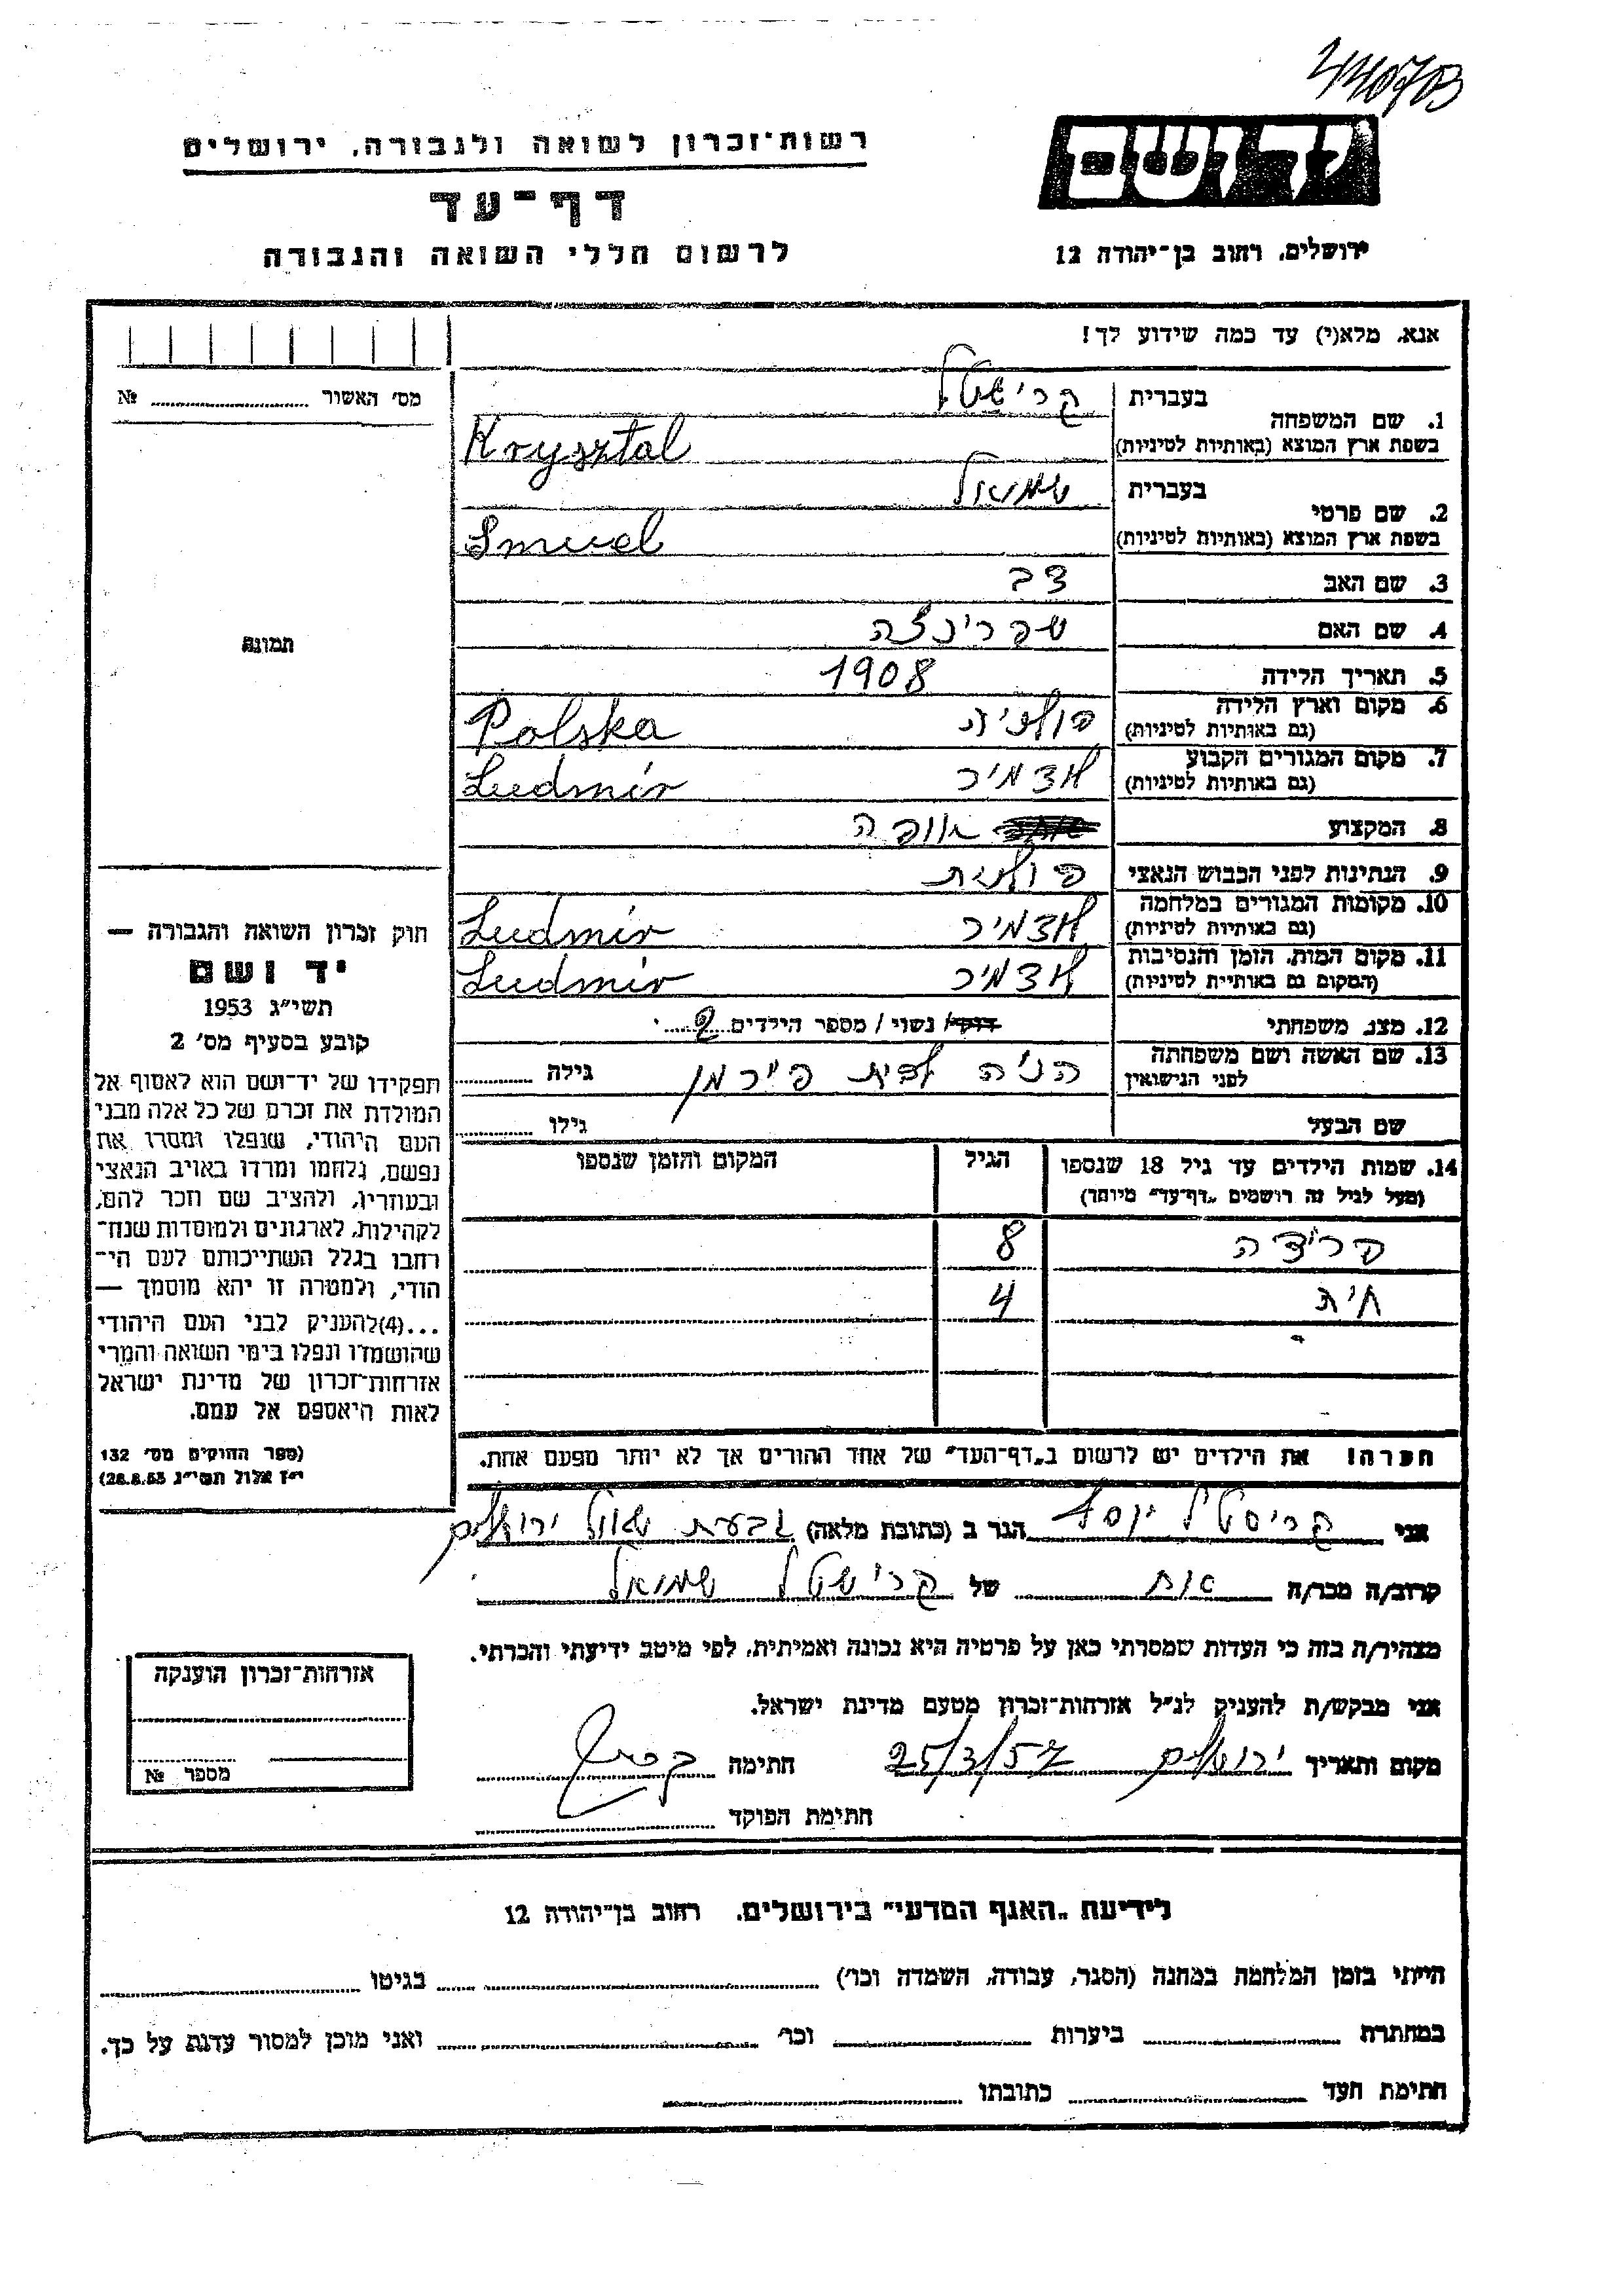 440703
רשות־זכרון לשואה ולגבורה, ירושלים
יד ושם
דף־עד
לרשום חללי השואה והגבורה
ירושלים, רחוב בן־יהודה 12
אנא, מלא(י) עד כמה שידוע לך!
מס' האשור № 
תמונה
בעברית קרישטל
1. שם המשפחה
בשפת ארץ המוצא (באותיות לטיניות) Krysztal
בעברית שמואל
2. שם פרטי
בשפת ארץ המוצא (באותיות לטיניות) Smuel
3. שם האב דב
4. שם האם שפרינצה
5. תאריך הלידה 1908
6. מקום וארץ הלידה
(גם באותיות לטיניות) פולניה Polska
7. מקום המגורים הקבוע
(גם באותיות לטיניות) לודמיר Ludmir
8. המקצוע אופה
9. הנתינות לפני הכבוש הנאצי פולנית
10. מקומות המגורים במלחמה
(גם באותיות לטיניות) לודמיר Ludmir
11. מקום המות, הזמן והנסיבות
(המקום גם באותיות לטיניות) לודמיר Ludmir
12. מצב משפחתי רווק/ נשוי/ מספר הילדים 2
13. שם האשה ושם משפחתה
לפני הנישואין הניה לבית פירמן גילה
שם הבעל גילו
14. שמות הילדים עד גיל 18 שנספו הגיל המקום והזמן שנספו
(מעל לגיל זה רושמים "דף־עד" מיוחד)
פרידה 8
חית 4
הערה! את הילדים יש לרשום ב"דף־העד" של אחד ההורים אך לא יותר מפעם אחת.
חוק זכרון השואה והגבורה —
יד ושם
תשי"ג 1953
קובע בסעיף מס' 2
תפקידו של יד־ושם הוא לאסוף אל
המולדת את זכרם של כל אלה מבני
העם היהודי, שנפלו ומסרו את
נפשם, נלחמו ומרדו באויב הנאצי
ובעוזריו, ולהציב שם וזכר להם,
לקהילות, לארגונים ולמוסדות שנח־
רבו בגלל השתייכותם לעם הי־
הודי, ולמטרה זו יהא מוסמך —
...(4)להעניק לבני העם היהודי
שהושמדו ונפלו בימי השואה והמרי
אזרחות־זכרון של מדינת ישראל
לאות היאספם אל עמם.
(ספר החוקים מס' 132
י"ז אלול תשי"ג 28.8.53)
אני קריסטל יוסף הגר ב (כתובת מלאה) גבעת שאול ירושלים
קרוב/ה מכר/ה אח של קרישטל שמואל
מצהיר/ה בזה כי העדות שמסרתי כאן על פרטיה היא נכונה ואמיתית, לפי מיטב ידיעתי והכרתי.
אני מבקש/ת להעניק לנ"ל אזרחות־זכרון מטעם מדינת ישראל.
מקום ותאריך ירושלים 25/3/57 חתימה
חתימת הפוקד
אזרחות־זכרון הוענקה
מספר №
לידיעת "האגף המדעי" בירושלים, רחוב בן־יהודה 12
הייתי בזמן המלחמה במחנה (הסגר, עבודה, השמדה וכו') בגיטו
במחתרת ביערות וכו' ואני מוכן למסור עדות על כך.
חתימת העד כתובתו